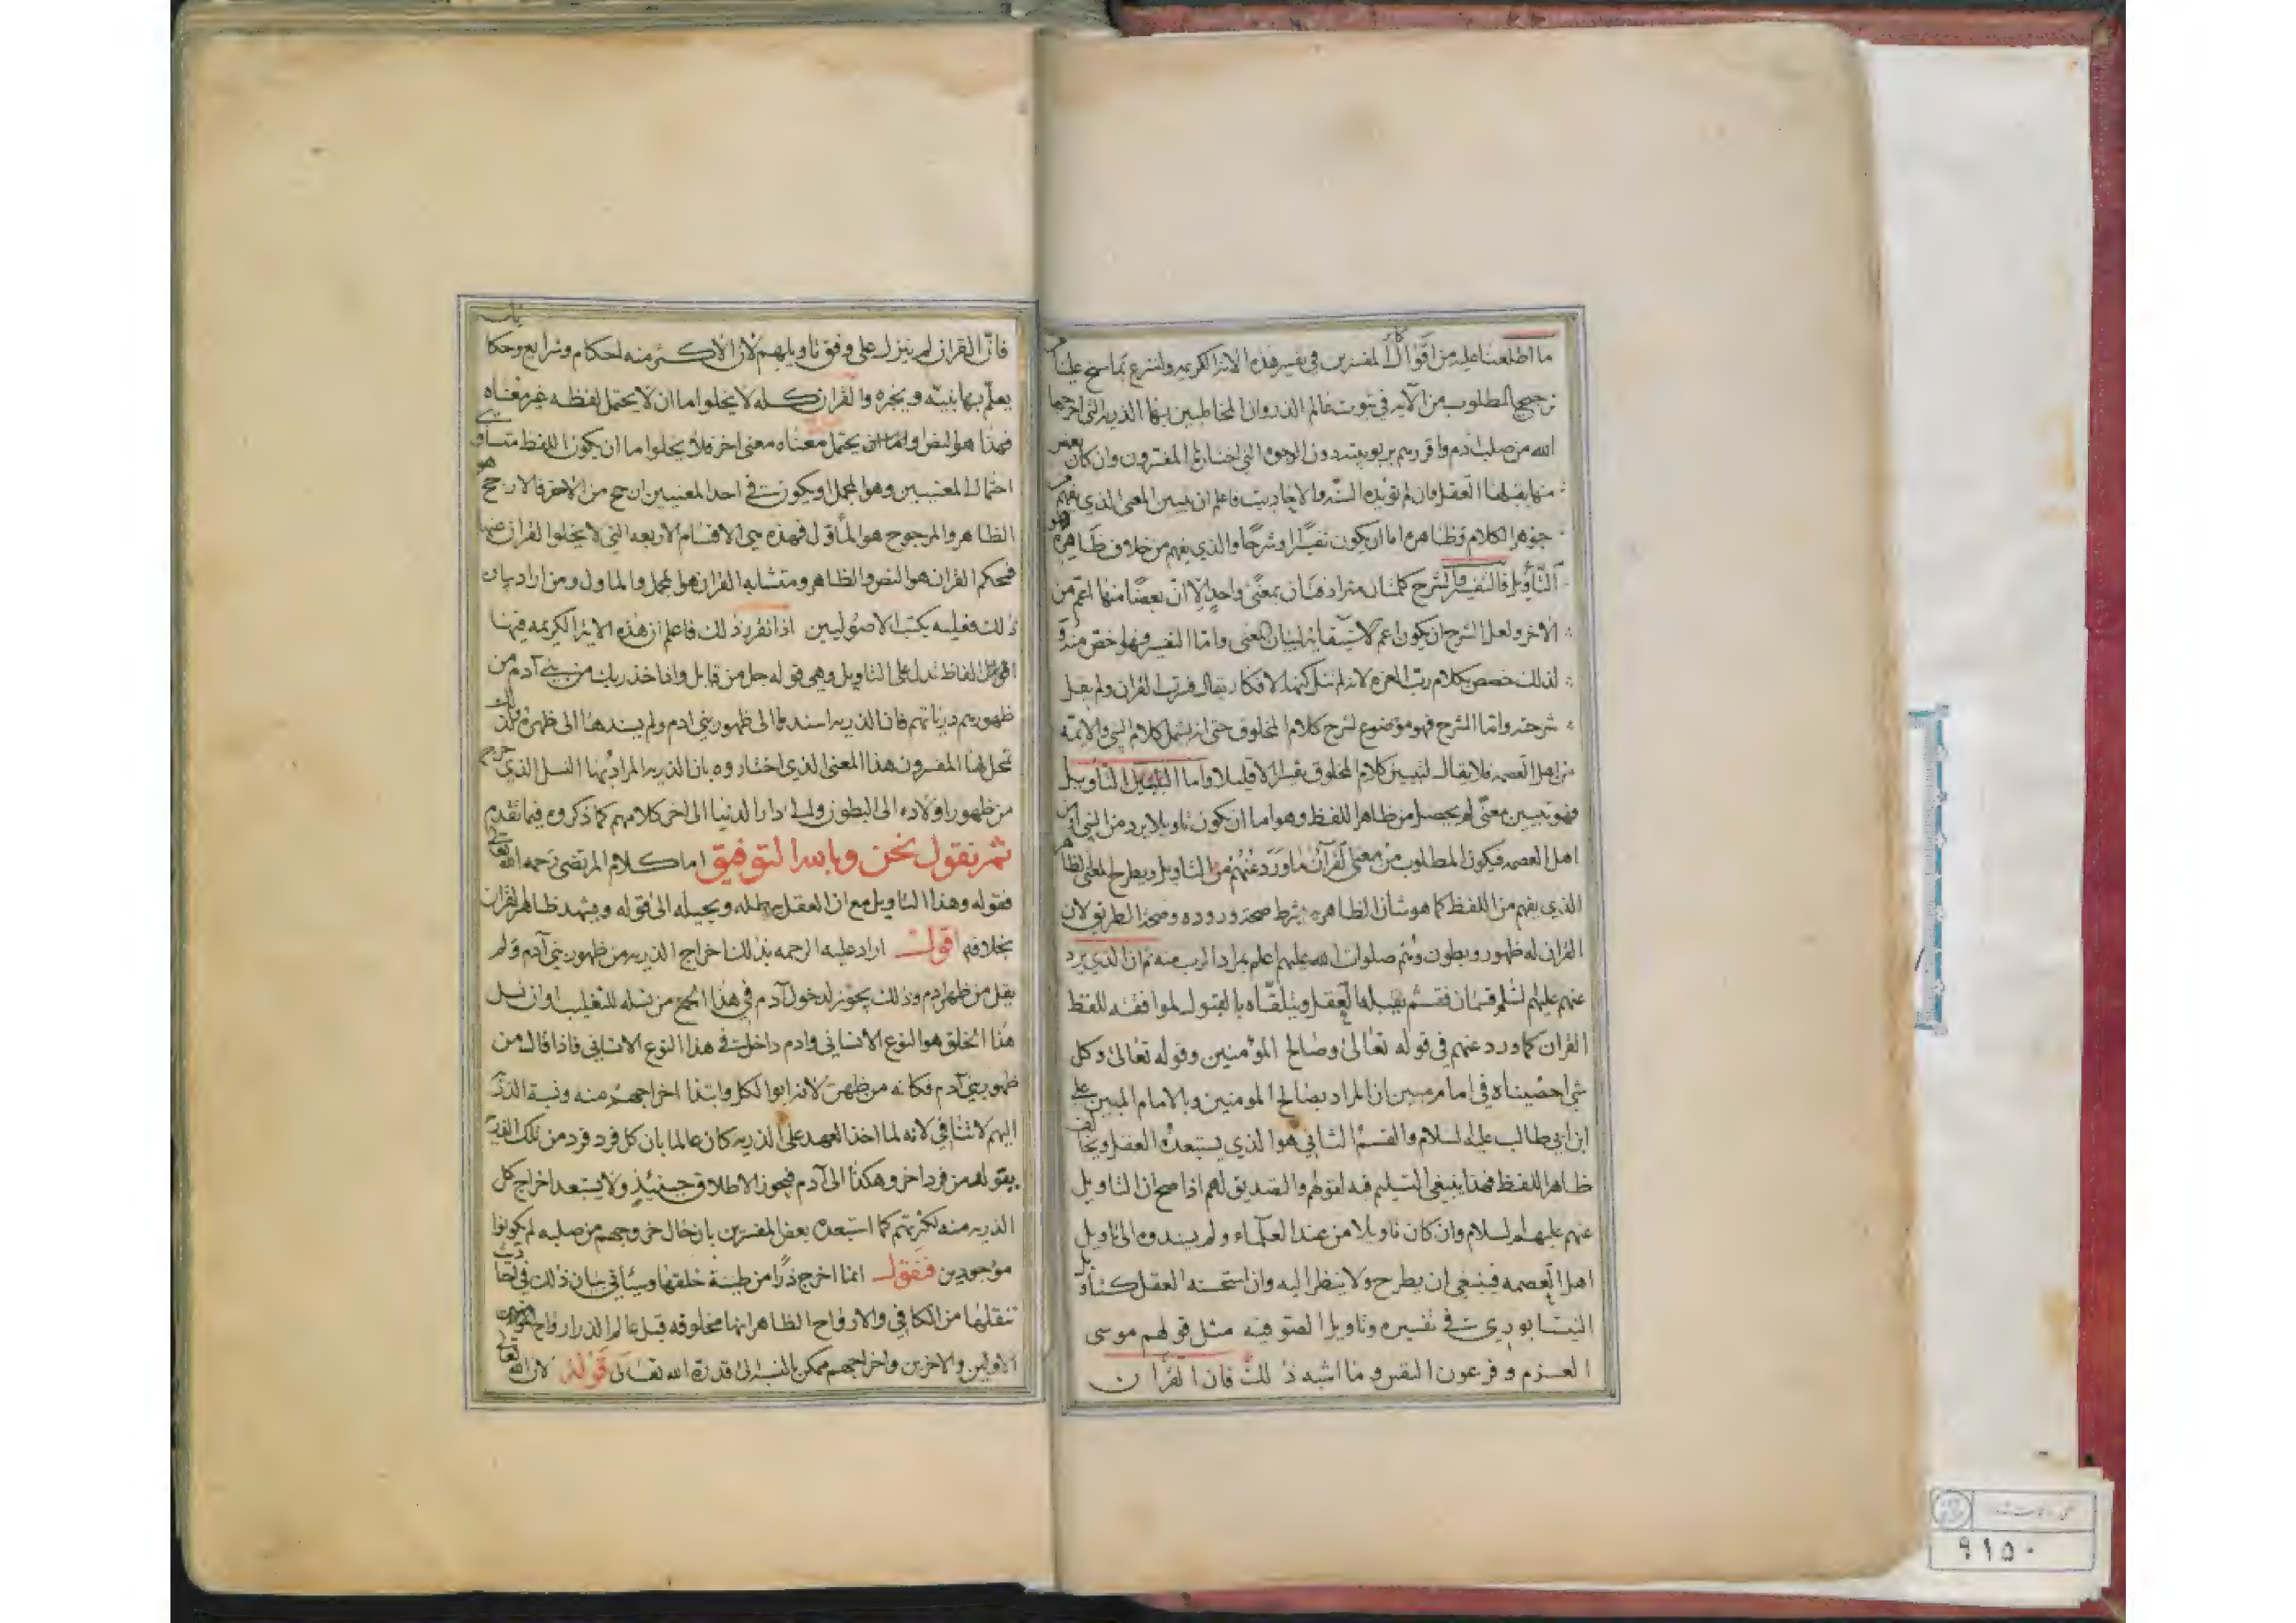 ما اطلعنا عليه من اقوال المفسرين في تفسير هذه الآية الكريمة ولنشرع بما سنح علينا من
ترجيح المطلوب من الآية في ثبوت عالم الذر وان المخاطبين بها الذرية التي اخرجها
الله من صلب آدم واقررهم بربوبيته دون الوجوه التي اختارها المفسرون وان كان بعض
منها يقبلها العقل وان لم تؤيده السنه والاحاديث فاعلم ان تبيين المعنى الذي يفهم من
جوهر الكلام وظاهره اما ان يكون تفسيرا وشرحا والذي يفهم من خلاف ظاهره هو
التأويل فالتفسير والشرح كلمتان مترادفتان بمعنى واحد الا ان بعضا منها اعم من
الآخر ولعل الشرح ان يكون اعم لاستيفائه لبيان المعنى واما التفسير فهو اخص منه و
لذلك خصص بكلام رب العزه لانه لم تنل كنهه الافكار يقال فسرت القران ولم يقل
شرحته واما الشرح فهو موضوع لشرح كلام المخلوق حتى انه يشمل كلام النبي والائمة
من اهل العصمه فلا يقال لتبيين كلام المخلوق تفسيرا الا قليلا واما التأويل
فهو تبيين معنى لم يحصل من ظاهر اللفظ وهو اما ان يكون تاويلا يرد من النبي او من
اهل العصمه فيكون المطلوب من معنى القرآن ما ورد عنهم من التاويل ويطرح المعنى الظاهر
الذي يفهم من اللفظ كما هو شان الظاهر بشرط صحة وروده وصحة الطريق لان
القران له ظهور وبطون وهم صلوات الله عليهم اعلم بمراد الرب منه ثم ان الذي يرد
عنهم عليهم السلم قسمان فقسم يقبله العقل ويتلقاه بالقبول لموافقته للفظ
القران كما ورد عنهم في قوله تعالى وصالح المؤمنين وقوله تعالى وكل
شي احصيناه في امام مبين ان المراد بصالح المومنين وبالامام المبين علي
ابن ابي طالب عليه السلام والقسم الثاني هو الذي يستبعده العقل ويخالف
ظاهر اللفظ فهذا ينبغي التسليم فيه لقولهم والتصديق لهم اذا صح ان التاويل
عنهم عليهم السلام وان كان تاويلا من عند العلماء ولم يسندوه الى تاويل
اهل العصمه فينبغي ان يطرح ولا ينظر اليه وان استحسنه العقل كتأويل
النيشابوري في تفسيره وتاويل الصوفيه مثل قولهم موسى
العزم وفرعون النفس وما اشبه ذلك فان القران
فان القران لم ينزل على وفق تاويلهم لان الاكثر منه احكام وشرايع وحكايات
يعلم بها نبيه ويخبره والقران كله لا يخلوا اما ان لا يحتمل لفظه غير معناه
فهذا هو النص واما ان يحتمل معناه معنى اخر فلا يخلوا اما ان يكون اللفظ متساوي
احتمال المعنيين وهو المجمل او يكون في احد المعنيين ارجح من الاخر فالارجح هو
الظاهر والمرجوح هو المأول فهذه هي الاقسام الاربعه التي لا يخلوا القران عنها
فمحكم القران هو النص والظاهر ومتشابه القران هو المجمل والماول ومن اراد بيان
ذلك فعليه بكتب الاصوليين اذا تقرر ذلك فاعلم ان هذه الاية الكريمه فيها
الفاظ تدل على التاويل وهي قوله جل من قايل واذ اخذ ربك من بني آدم من
ظهورهم ذرياتهم فان الذريه اسندها الى ظهور بني ادم ولم يسندها الى ظهره ولذلك
تمحل لها المفسرون هذا المعنى الذي اختاروه بان الذريه المراد بها النسل الذي خرج
من ظهور اولاده الى البطون والى دار الدنيا الى اخر كلامهم كما ذكروه فيما تقدم
ثم نقول نحن وبالله التوفيق اما كلام المرتضى رحمه الله تعالى
فقوله وهذا التاويل مع ان العقل يبطله ويحيله الى قوله ويشهد ظاهر القران
بخلافه اقول اراد عليه الرحمه بذلك اخراج الذريه من ظهور بني آدم ولم
يقل من ظهر ادم وذلك يجوز لدخول آدم في هذا الجمع من نسله للتغليب او ان نسل
هذا الخلق هو النوع الانساني وادم داخل في هذا النوع الانساني فاذا قال من
ظهور بني آدم فكانه من ظهره لانه ابو الكل وابتدا اخراجهم منه ونسبة الذرية
اليهم لا تنافي لانه لما اخذ العهد على الذريه كان عالما بان كل فرد فرد من تلك الذرية
يتولد من فرد اخر وهكذا الى آدم فيجوز الاطلاق حينئذ ولا يستبعد اخراج كل
الذريه منه لكثرتهم كما استبعده بعض المفسرين بان حال خروجهم من صلبه لم يكونوا
موجودين فنقول انما اخرج ذرا من طينة خلقها وسيأتي بيان ذلك في احاديث
ننقلها من الكافي والارواح الظاهر انها مخلوقه قبل عالم الذر ارواح
الاولين والاخرين واخراجهم ممكن بالنسبة الى قدرة الله تعالى قوله لان الله تعالى
٩١٥٠